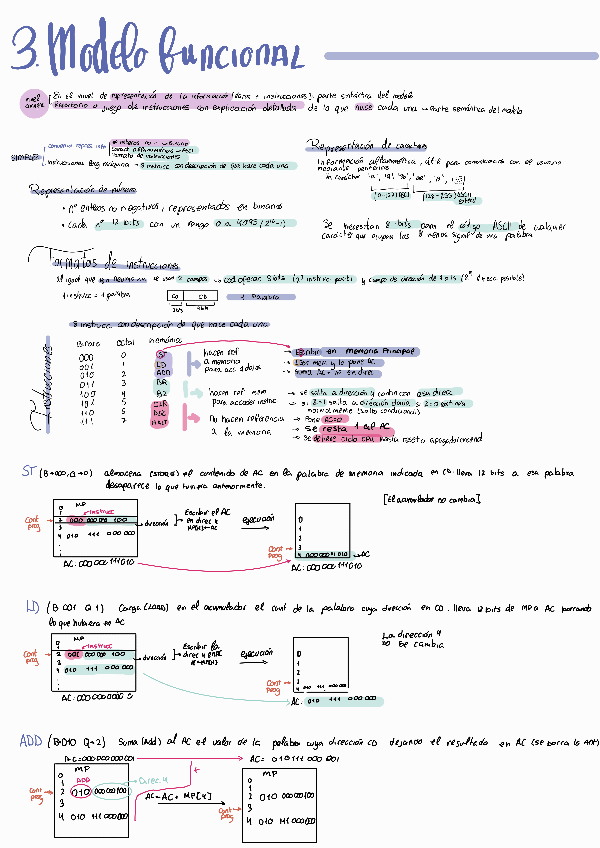 3. Modelo funcional
nivel
En el nivel de representación de la información (datos + instrucciones). parte sintáctica del modelo
Inventario o juego de instrucciones con explicación detallada de lo que hace cada una → parte semántica del modelo
SIMPLEZ
convenios repres. info
nº enteros no - → binario
caract alfanuméricos → ASCII
formato de instrucciones
instrucciones leng máquina → 8 instruc con descripción de que hace cada una
Representación de caracteres
Información alfanumérica, útil para comunicarse con el usuario mediante periféricos
Representación de números
• nº enteros no negativos, representados en binario
• Cada nº 12 bits con un rango 0 a 4095 (2¹²-1)
Se necesitan 8 bits para el código ASCII de cualquier
carácter que ocupan los 8 menos signif de una palabra
Formatos de instrucciones
1 instruc = 1 palabra
CO CD
3 bits 9 bits
1 Palabra
8 instruc. con descripción de que hace cada una
Instrucciones
Binario Octal nemónico
000 0 ST
001 1 LD
010 2 ADD
011 3 BR
100 4 BZ
101 5 CLR
110 6 DEC
111 7 HALT
hacen ref
a memoria
para acc a datos
→ Escribir en memoria Principal
→ Lee mem y lo pone AC
hacen ref mem
para acceder instruc
→ se salta a dirección y continúa esa direc
no hacen referencia
a la memoria
→ Pone AC=0
→ se resta 1 al AC
ST (B→000, Q→0) almacena (store) el contenido de AC en la palabra de memoria indicada en CD. lleva 12 bits a esa palabra
desaparece lo que tuviera anteriormente.
[El acumulador no cambia]
MP
0
1 → Instruc
2 000 000 000 100
3
4 010 111 000 000
Cont
prog
dirección
Escribir el AC
en direc 4
MP[4]←AC
ejecución
0
1
2
3
4 000 000 111 010 → AC
Cont
prog
AC: 000 000 111 010
AC: 000 000 111 010
LD (B 001 Q 1) Carga (LOAD) en el acumulador el cont de la palabra cuya dirección en CD. lleva 12 bits de MP a AC borrando
lo que hubiera en AC
La dirección 4
no se cambia
MP
0
1 → Instruc
2 001 000 000 100
3
4 010 111 000 000
Cont
prog
dirección
ejecución
0
1
2
3
4 010 111 000 000
Cont
prog
AC: 010 111 000 000
ADD (B:010 Q=2) Suma (Add) al AC el valor de la palabra cuya dirección CD dejando el resultado en AC (se borra lo ANT)
AC=000 000 000 001
AC= 010 111 000 001
MP
0
1 ADD
2 010 000 000 100
3
4 010 111 000 000
Cont
prog
→ Direc. 4
+
AC←AC + MP[4]
MP
0
1
2 010 000 000 100
3
4 010 111 000 000
Cont
prog